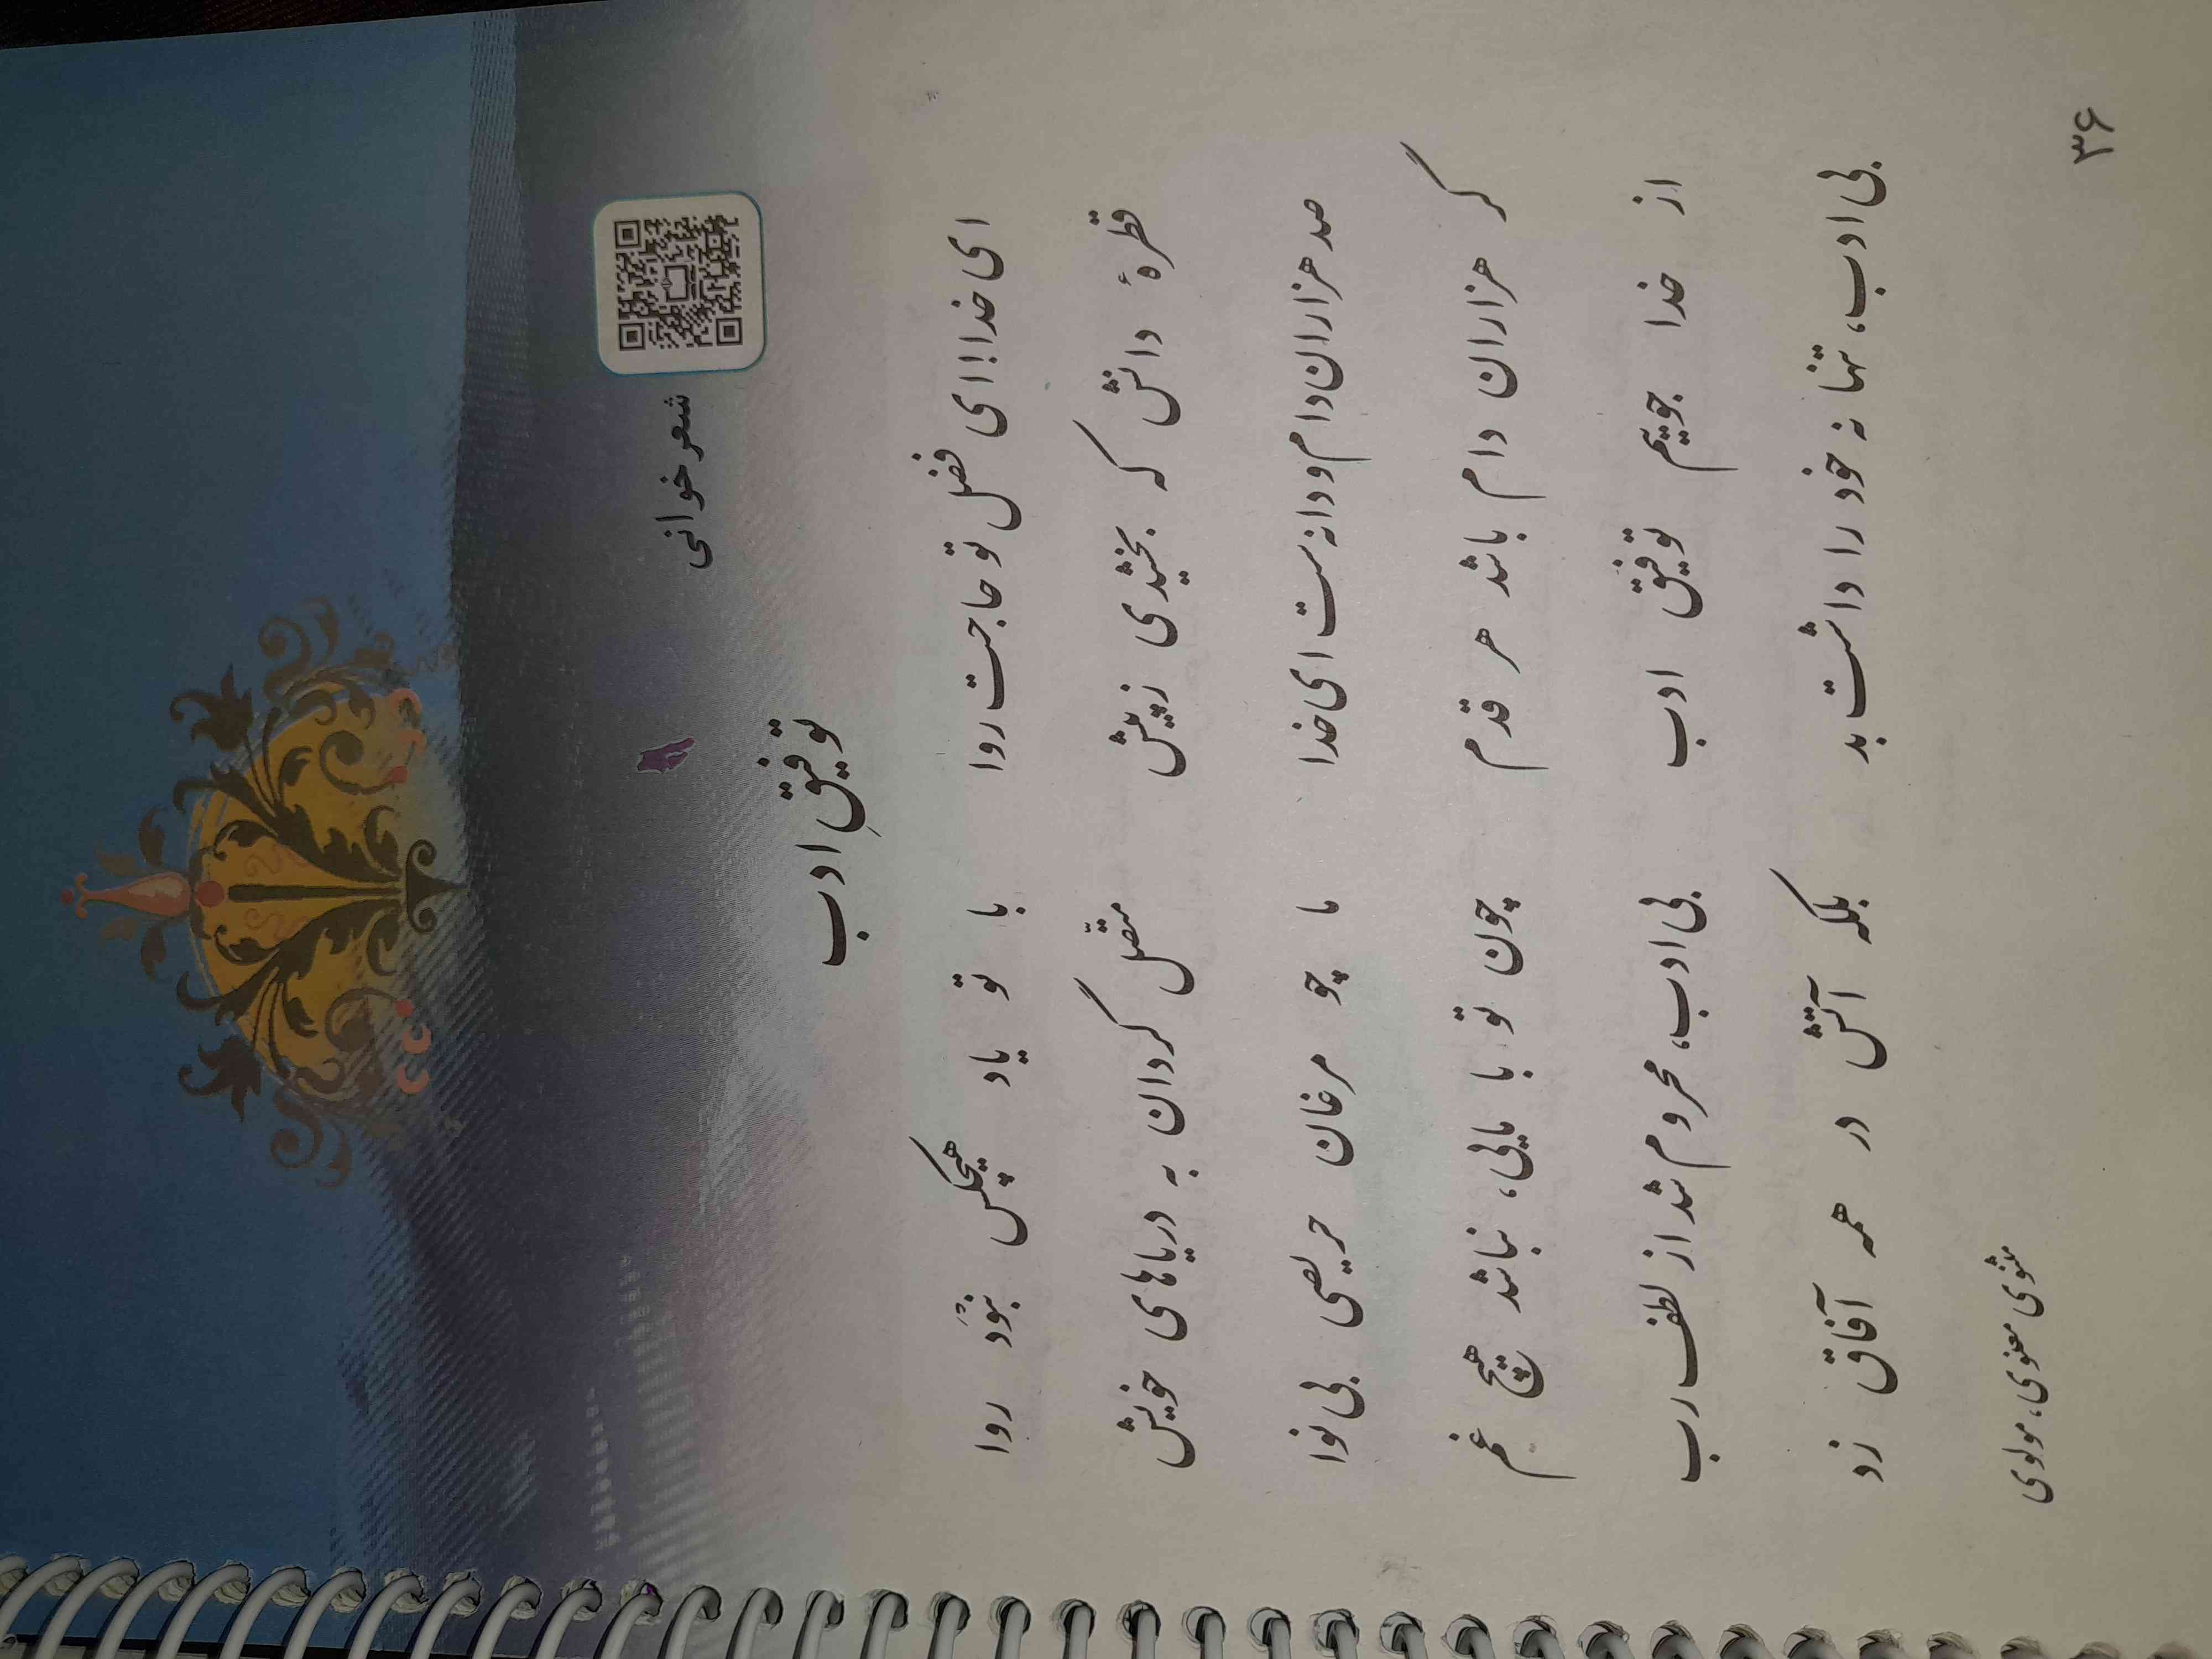 شعرخوانی
توفیقِ ادب
ای خدا! ای فضل تو حاجت روا با تو یاد هیچکس نبْوَد روا
قطرهٔ دانش که بخشیدی ز پیش متّصل گردان به دریاهای خویش
صد هزاران دام و دانه ست ای خدا ما چو مرغان حریصی بی نوا
گر هزاران دام باشد هر قدم چون تو با مایی، نباشد هیچ غم
از خدا جوییم توفیق ادب بی ادب، محروم شد از لطف رب
بی ادب، تنها نه خود را داشت بد بلکه آتش در همه آفاق زد
مثنوی معنوی، مولوی
۳۶